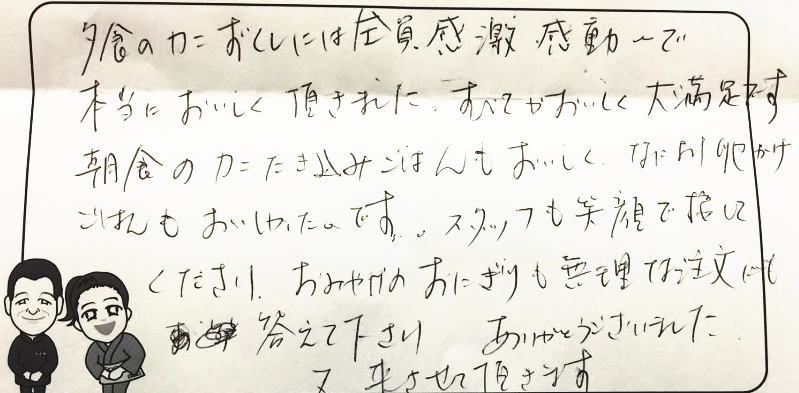 夕食のカニづくしには全員感激感動〜で
本当においしく頂きました。すべてがおいしく大満足です
朝食のカニたき込みごはんもおいしく、なにより卵かけ
ごはんもおいしかったのです。スタッフも笑顔で接して
くださり、おみやげのおにぎりも無理な注文にも
答えて下さり ありがとうございました。
又来させて頂きます